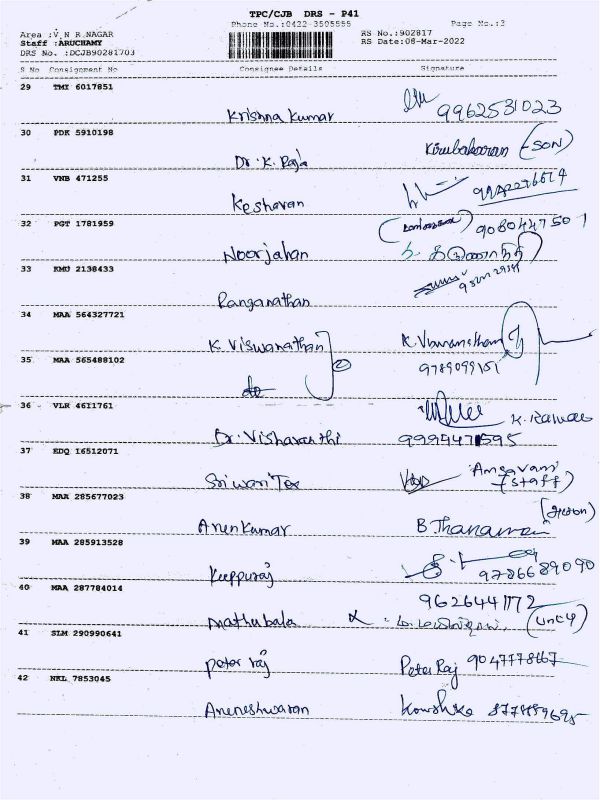 TPC/CJB DRS - P41
Phone No.:0422-3505555
Page No.:3
Area :V N R.NAGAR
Staff :ARUCHAMY
DRS No. :DCJB90281703
RS No.:902817
RS Date:08-Mar-2022
S No Consignment No Consignee Details Signature
29 TMI 6017851
Krishna Kumar 9962531023
30 PDK 5910198
Dr. K. Raja Kirubakaran (SON)
31 VNB 471255
Kesharan
32 PGT 1781959
Noorjahan 9080447501
33 KMU 2138433
Ranganathan
34 MAA 564327721
K. Viswanathan K. Viswanathan
35 MAA 565488102
do 9789099151
36 VLR 4611761
Dr. Vishavanthi 9994471595
37 EDQ 16512071
Sriwari Tex (Staff)
38 MAA 285677023
Arenkumar B Thanamani
39 MAA 285913528
Kuppuraj 9786689090
40 MAA 287784014
9626441172
Mathubala
41 SLM 290990641
Peter raj Peter Raj
42 NKL 7853045
Aneneshwaran